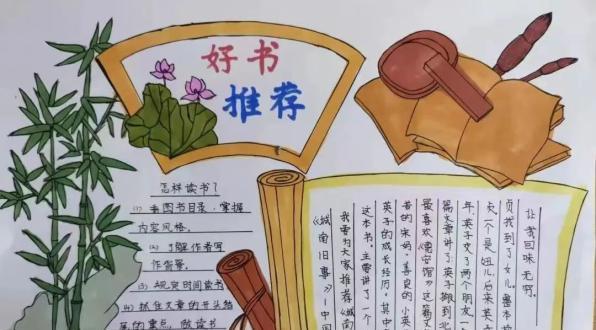 好书
推荐
怎样读书？
(1) 看图书目录，掌握
内容风格。
(2) 了解作者写
作背景。
(3) 规定时间读书
(4) 抓住文章的开头结
尾的重点，做读书
《城南旧事》一中
我要为大家推荐《城南
这本书，主要讲了一个
英子的成长经历，其中
者的宋妈，善良的小英
最喜欢《惠安馆》这
篇文章讲了：英子搬到北
年，英子交了两个朋友，一
一个是妞儿，后来英
贡找到了女儿，整本
让我回味无穷。